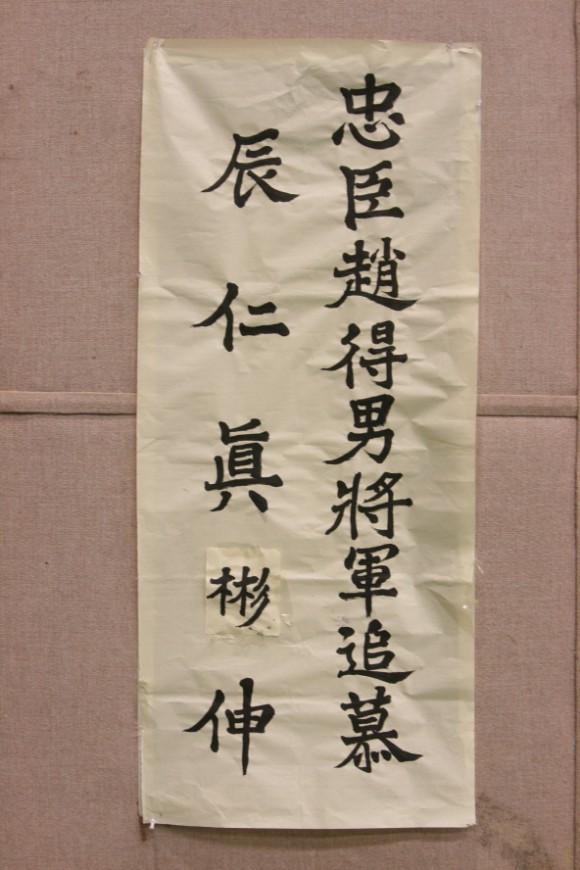 忠臣趙得男將軍追慕
辰仁眞彬伸